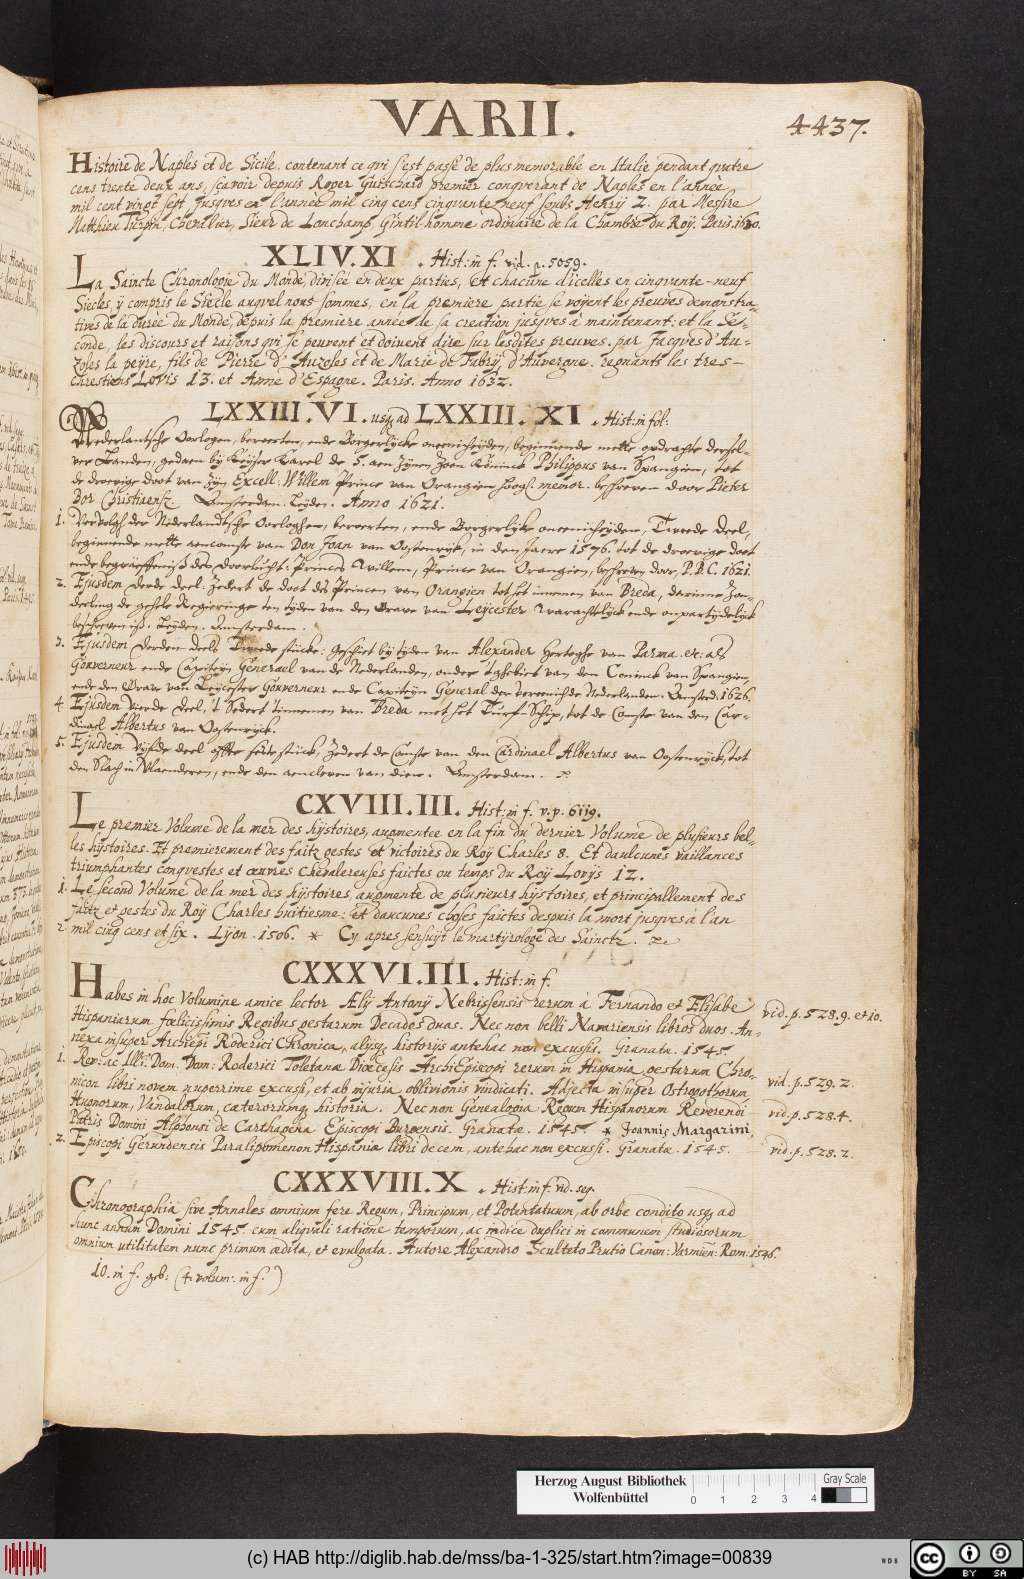 VARII.
4437.
Histoire de Naples et de Sicile. contenant ce qvi s'est passé de plus memorable en Italie pendant qvatre
cens trente deux ans, sçavoir depuis Roger Guischard premier conqverant de Naples en l'année
mil cent vingt sept jusqves en l'année mil cinq cens cinqvante neuf soubs Henrÿ 2. par Messire
Matthieu Turpin, Chevalier, Sieur de Lonchamp, Gentil-homme ordinaire de la Chambre du Roy. Paris. 1630.
XLIV. XI. Hist: in f. vid. p. 5059.
La Saincte Chronologie du Monde, divisée en deux parties, et chacune d'icelles en cinqvante-neuf
Siecles, ÿ compris le Siecle auqvel nous sommes, en la premiere partie se voyent les preuves demonstra-
tives de la durée du Monde, depuis la premiere année de sa creation jusqves à maintenant: et la Se-
conde, les discours et raisons qvi se peuvent et doivent dire sur lesdites preuves. par Jacqves d'Au-
zoles la peÿre, fils de Pierre d'Auzoles et de Marie de Fabrÿ, d'Auvergne. regnants les tres-
chrestiens Lovis 13. et Anne d'Espagne. Paris. Anno 1632.
LXXIII. VI. usq; ad LXXIII. XI. Hist: in fol:
Nederlantsche Oorlogen, beroerten, ende Borgerlijcke oneenicheijden, beginnende mette opdrachte dersel-
ver Landen, gedaen bij Keijser Karel de 5. aen zijnen Zoon Köninck Philippus van Spangien, tot
de droevige doot van zijn Excell: Willem Prince van Orangien hoogl. memor. beschreven door Pieter
Bor Christiaensz. Amsterdam. Leijden. Anno 1621.
1. Vervolgh der Nederlandtsche Oorloghen, beroerten, ende Borgerlijke oneenicheijden, Tweede deel,
beginnende mette aencomste van Don Joan van Oostenrijk, in den Jaere 1576. tot de droevige doot
ende begraeffeniss des Doorlucht: Princes Willem, Prince van Orangien, beschreven door P. B. C. 1621.
2. Ejusdem derde deel. Zedert de doot des Princen van Orangien tot het innemen van Breda, darinne Zon-
derling de gehele Regieringe ten tijden van den Grave van Leÿcester warachtelijck ende onpartijdelijck
beschreven iss. Leijden. Amsterdam.
3. Ejusdem derden deels Tweede stucke: geschiet bij tijden van Alexander Hertoghe van Parma. etc: als
Gouverneur ende Capiteÿn General van de Nederlanden, onder t'ghebiet van den Coninck van Spangien,
ende den Grave van Leijcester Gouverneur ende Capiteÿn General der vereenichde Nederlanden. Amsted. 1626.
4. Ejusdem vierde deel, 't Sedert t'innemen van Breda met het Turf-Schip, tot de Comste van den Car-
dinael Albertus van Oostenrijck.
5. Ejusdem vijfde deel ofte stucke, zedert de Comste van den Cardinael Albertus van Oostenrijck, tot
den Slach in Vlaenderen, ende den aencleven van dien. Amsterdam.
CXVIII. III. Hist: in f. v. p. 6119.
Le premier Volume de la mer des hÿstoires, augmentee en la fin du dernier Volume de plusieurs bel-
les hÿstoires. Et premierement des faitz gestes et victoires du Roÿ Charles 8. Et daulcunes vaillances
triumphantes conqvestes et œuvres chevalereuses faictes ou temps du Roÿ Loÿs 12.
1. Le second Volume de la mer des hÿstoires, augmente de plusieurs hÿstoires, et principallement des
faitz et gestes du Roÿ Charles huitiesme: et daucunes choses faictes despuis la mort jusqves à l'an
2 mil cinq cens et six. Lÿon. 1506. * Cy apres sensuÿt le martÿrologe des Sainctz.
CXXXVI. III. Hist: in f.
Habes in hoc Volumine amice lector Ælÿ Antonÿ Nebrissensis rerum à Fernando et Elisabe
vid. p. 528. 9. et 10.
Hispaniarum fœlicissimis Regibus gestarum Decades duas. Nec non belli Navariensis libros duos. An-
nexa insuper Archiepi Roderici Chronica, alijsq; historijs antehac non excussis. Granata. 1545
1. Rev: ac Illi: Dom. Dom: Roderici Toletanæ Diœcesis ArchiEpiscopi rerum in Hispania gestarum Chro-
vid. p. 529. 2.
nicon libri novem nuperrime excussi, et ab injuria oblivionis vindicati. Adjecta insuper Ostrogothorum
Hugnorum, Vandalorum, cæterorumq; historia. Nec non Genealogia Regum Hispanorum Reverendi
vid. p. 528. 4.
Patris Domini Alphonsi de Carthagena Episcopi Burgensis. Granata. 1545. * Joannis Margarini,
2. Episcopi Gerundensis Paralipomenon Hispaniæ libri decem, antehac non excussi. Granatæ. 1545.
vid. p. 528. 2.
CXXXVIII. X. Hist: in f. vid. seq.
Chronographia sive Annales omnium fere Regum, Principum, et Potentatuum, ab orbe condito usq; ad
hunc annum Domini 1545. cum aliqvali ratione temporum, ac indice duplici in communem studiosorum
omnium utilitatem nunc primum ædita, et evulgata. Autore Alexandro Sculteto Prutio Canon: Varmien: Rom: 1546.
10. in f. geb: (4. volum: in f.)
Herzog August Bibliothek
Wolfenbüttel
Gray Scale
0 1 2 3 4
(c) HAB http://diglib.hab.de/mss/ba-1-325/start.htm?image=00839
WDB
cc BY SA